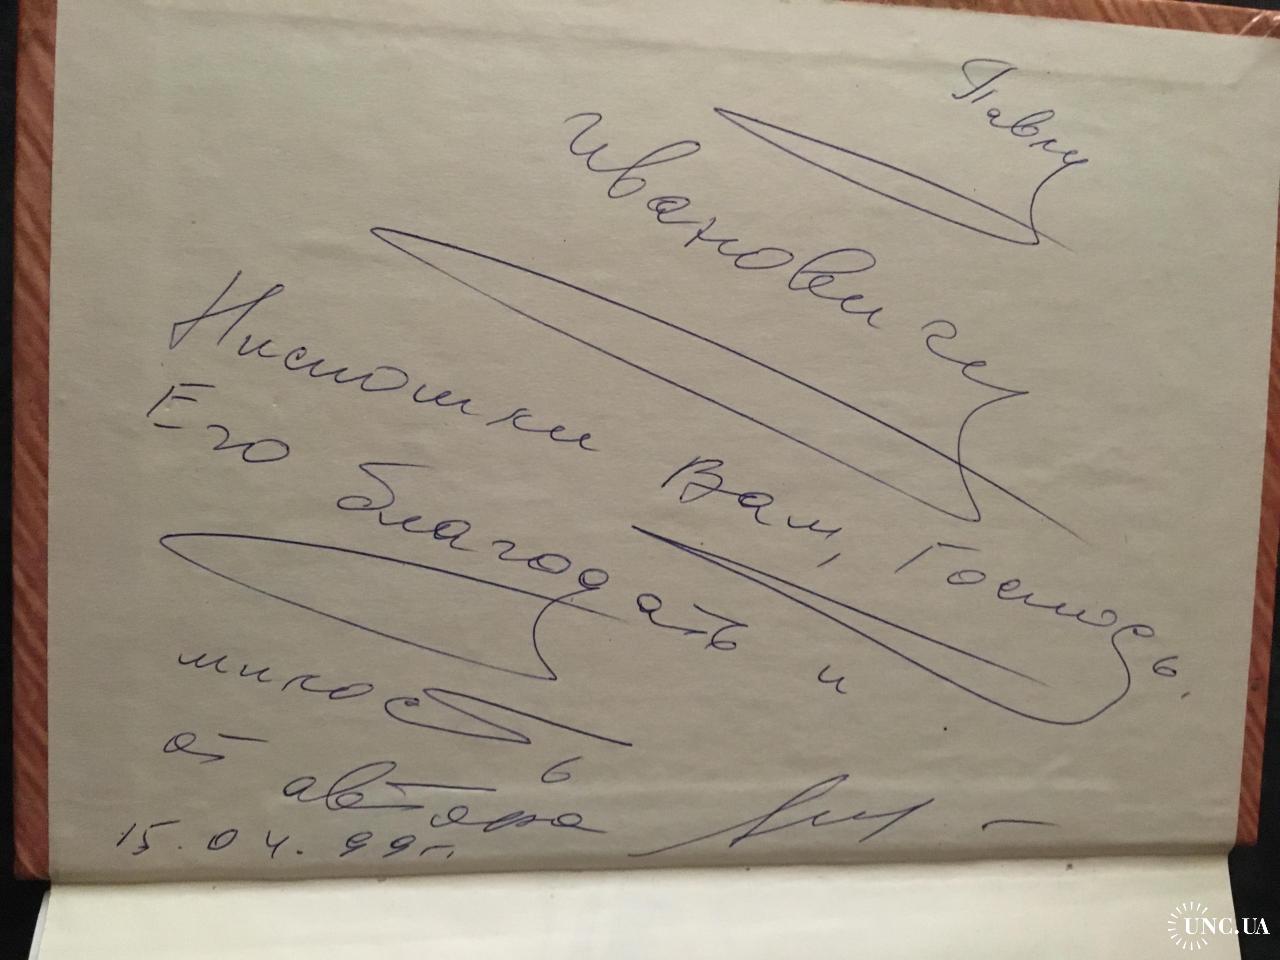 Павлу
Ивановичу
Ниспошли Вам, Господь,
Его благодать и
милость
от автора
15.04.99г.
UNC.UA